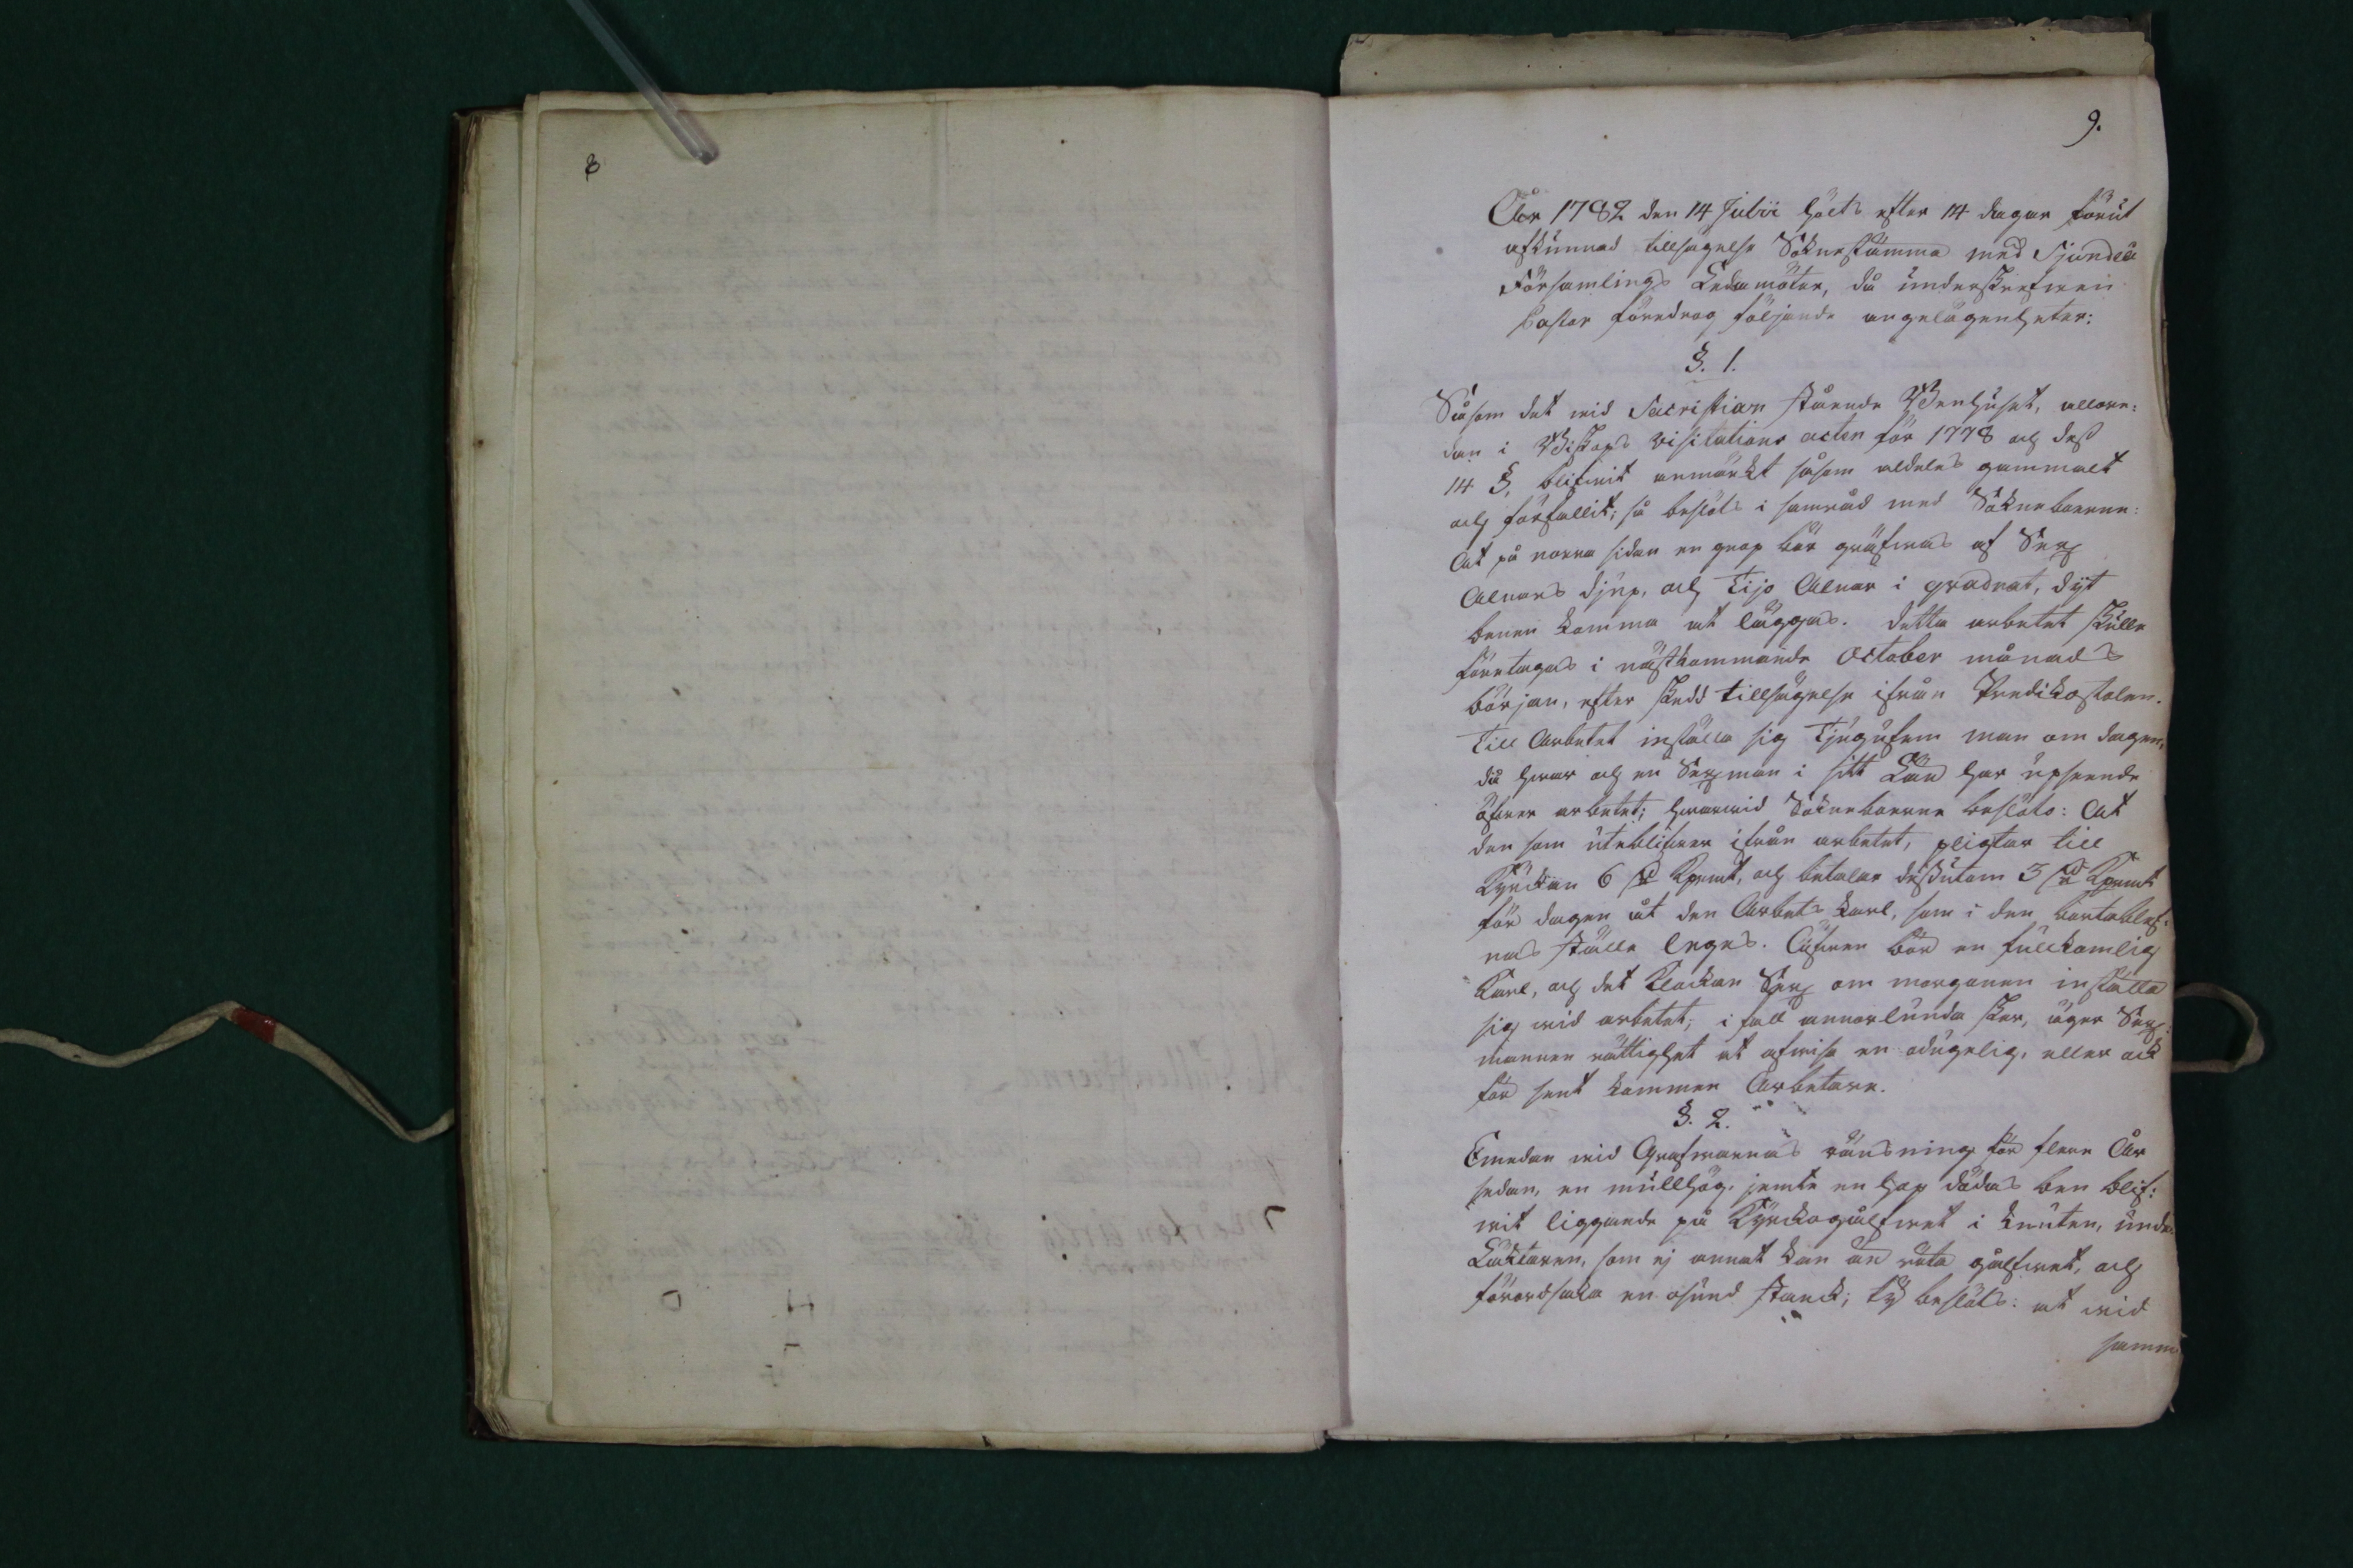 8
9.
År 1782 den 14 Julii hölts efter 14 dagar förut
afkunnad tillsägelse Soknestämma med Sjundeå
Församlings Ledamöter, då underskrefwen
Pastor föredrog följande angelägenheter:
§. 1.
Såsom det wid Sacristian stående Benhuset, allare:
dan i Biskops visitations acten för 1778 och dess
14 §, blifwit anmärkt såsom aldeles gammalt
och förfallit; så beslöts i samråd med Sokneboerne:
At på norra sidan en grop bör gräfwas af Sex
Alnars djup, och Tijo Alnar i qvadrat, dijt
benen komma at läggas. Detta arbetet skulle
företagas i nästkommande October månads
början, efter skedd tillsägelse ifrån Predikostolen.
Till Arbetet inställa sig Tjugufem man om dagen,
då hwar och en Sexman i sitt Län har upseende
öfwer arbetet; hwarwid Sokneboerne beslöts: At
den som uteblifwer ifrån arbetet, pligtar till
Kyrckan 6 d Kopmt, och betalar dessutom 3 d Kopmt
för dagen åt den Arbets karl, som i den bortoblef:
nas ställe leges. Äfwen bör en fullkomlig
Karl, och det Klockan Sex om morgonen inställa
sig wid arbetet; i fall annorlunda sker, äger Sex:
mannen rättighet at afwisa en odugelig, eller ock
för sent kommen Arbetare.
§. 2.
Emedan wid Grafwarnas ränsning för flere År
sedan, en mullhög, jemte en hop dödas ben blif:
wit liggande på Kyrckogolfwet i knuten, under
Läktaren, som ej annat kan än röta golfwet, och
förordsaka en osund stanck; ty beslöts: at wid
samm